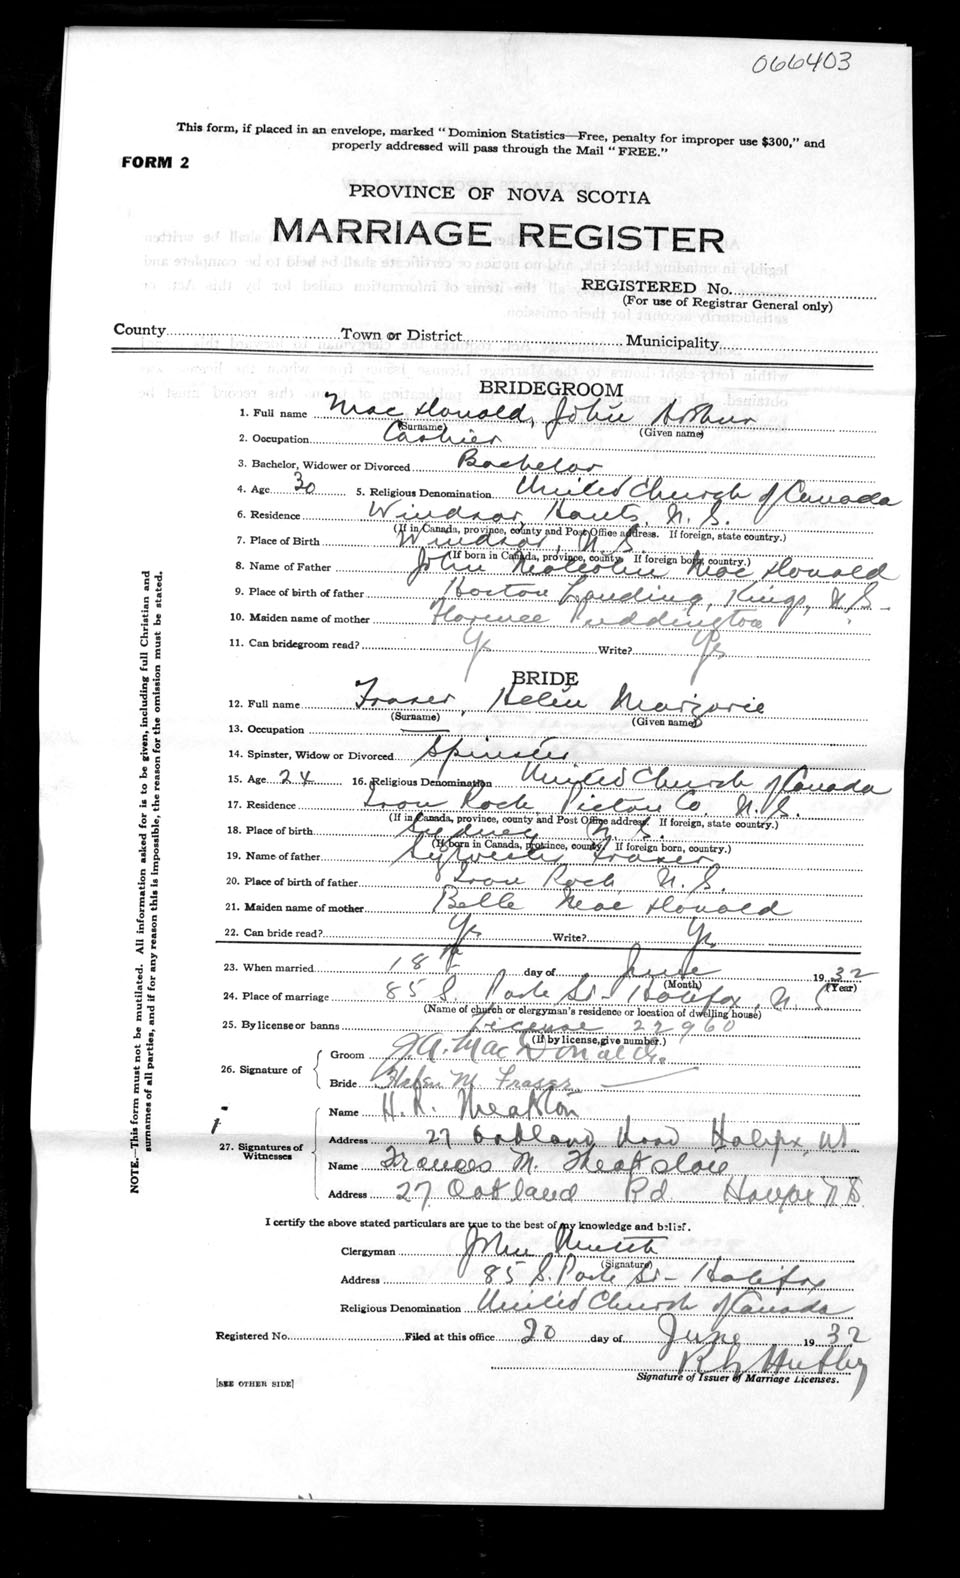 066403
This form, if placed in an envelope, marked "Dominion Statistics—Free, penalty for improper use $300," and
properly addressed will pass through the Mail "FREE."
FORM 2
PROVINCE OF NOVA SCOTIA
MARRIAGE REGISTER
REGISTERED No.
(For use of Registrar General only)
County Town or District Municipality
BRIDEGROOM
1. Full name MacDonald, John Arthur
(Surname) (Given name)
2. Occupation Cashier
3. Bachelor, Widower or Divorced Bachelor
4. Age 30 5. Religious Denomination United Church of Canada
6. Residence Windsor, Hants, N.S.
(If in Canada, province, county and Post Office address. If foreign, state country.)
7. Place of Birth Windsor, N.S.
(If born in Canada, province, county. If foreign born, country.)
8. Name of Father John Malcolm MacDonald
9. Place of birth of father Horton Landing, Kings, N.S.
10. Maiden name of mother Florence Puddington
11. Can bridegroom read? Yes Write? Yes
BRIDE
12. Full name Fraser, Helen Marjorie
(Surname) (Given name)
13. Occupation —
14. Spinster, Widow or Divorced Spinster
15. Age 24 16. Religious Denomination United Church of Canada
17. Residence Iron Rock Pictou Co. N.S.
(If in Canada, province, county and Post Office address. If foreign, state country.)
18. Place of birth Sydney N.S.
(If born in Canada, province, county. If foreign born, country.)
19. Name of father Sylvester Fraser
20. Place of birth of father Iron Rock, N.S.
21. Maiden name of mother Belle MacDonald
22. Can bride read? Yes Write? Yes
23. When married 18th day of June 1932
(Month) (Year)
24. Place of marriage 85 S. Park St- Halifax, N.S.
(Name of church or clergyman's residence or location of dwelling house)
25. By license or banns License 22960
(If by license, give number.)
26. Signature of Groom J.A. MacDonald.
Bride Helen M. Fraser
27. Signatures of Witnesses
Name H. R. Theakston
Address 27 Oakland Road Halifax, N.S.
Name Frances M. Theakston
Address 27 Oakland Rd Halifax N.S.
I certify the above stated particulars are true to the best of my knowledge and belief.
Clergyman John
(Signature)
Address 85 S. Park St- Halifax
Religious Denomination United Church of Canada
Registered No. Filed at this office 20 day of June 1932
Signature of Issuer of Marriage Licenses.
[SEE OTHER SIDE]
NOTE.—This form must not be mutilated. All information asked for is to be given, including full Christian and
surnames of all parties, and if for any reason this is impossible, the reason for the omission must be stated.